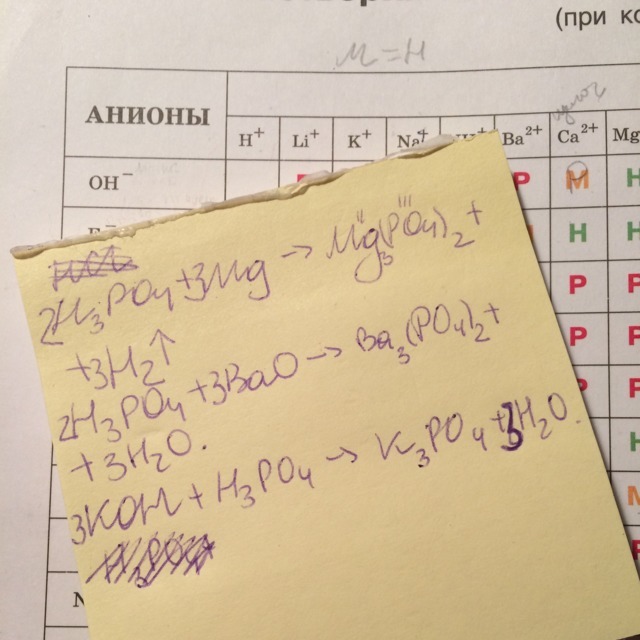 (при ко
M = H
АНИОНЫ
H⁺ Li⁺ K⁺ Na⁺ Ba²⁺ Ca²⁺ Mg
OH⁻ P M H
H H
P P
P P
P P
H
M
P
2H₃PO₄+3Mg → Mg₃(PO₄)₂ +
II III
+3H₂↑
2H₃PO₄+3BaO → Ba₃(PO₄)₂ +
+3H₂O.
3KOH + H₃PO₄ → K₃PO₄+3H₂O.